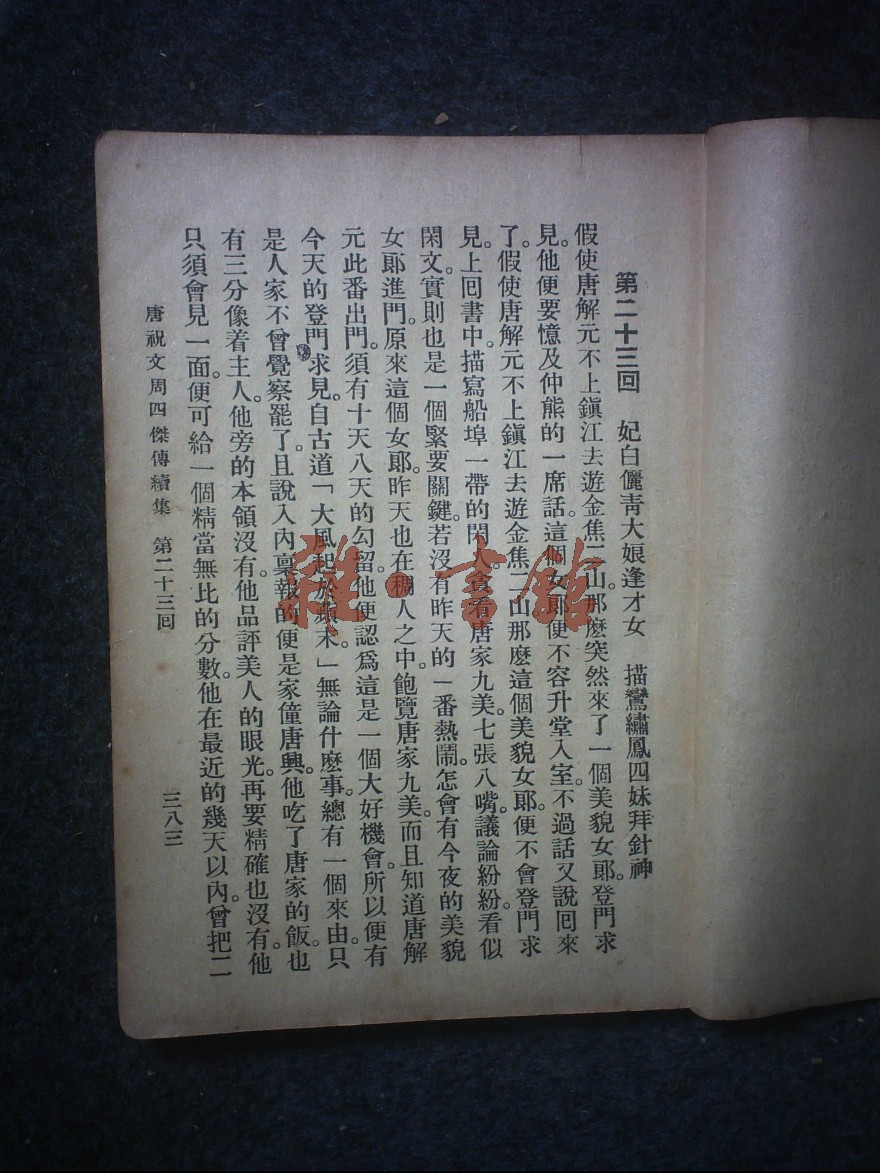 第二十三回　妃白儷青大娘逢才女　描鸞繡鳳四妹拜針神
假使唐解元不上鎮江去遊金焦二山。那麽突然來了一個美貌女郎。登門求
見。他便要憶及仲熊的一席話。這個女郎便不容升堂入室。不過話又說囘來
了。假使唐解元不上鎮江去遊金焦二山那麽這個美貌女郎。便不會登門求
見。上囘書中。描寫船埠一帶的閑人。貪看唐家九美。七張八嘴。議論紛紛。看似
閑文。實則也是一個緊要關鍵。若沒有昨天的一番熱鬧。怎會有今夜的美貌
女郎進門。原來這個女郎。昨天也在稠人之中。飽覽唐家九美。而且知道唐解
元此番出門。須有十天八天的勾留。他便認爲這是一個大好機會。所以便有
今天的登門求見。自古道「大風起於蘋末。」無論什麽事。總有一個來由。只
是人家不曾覺察罷了。且說入內稟報的便是家僮唐興。他吃了唐家的飯。也
有三分像着主人。他旁的本領沒有。他品評美人的眼光。再要精確也沒有。他
只須會見一面。便可給一個精當無比的分數。他在最近的幾天以內。曾把二
唐祝文周四傑傳續集　第二十三囘　三八三
雜·書館